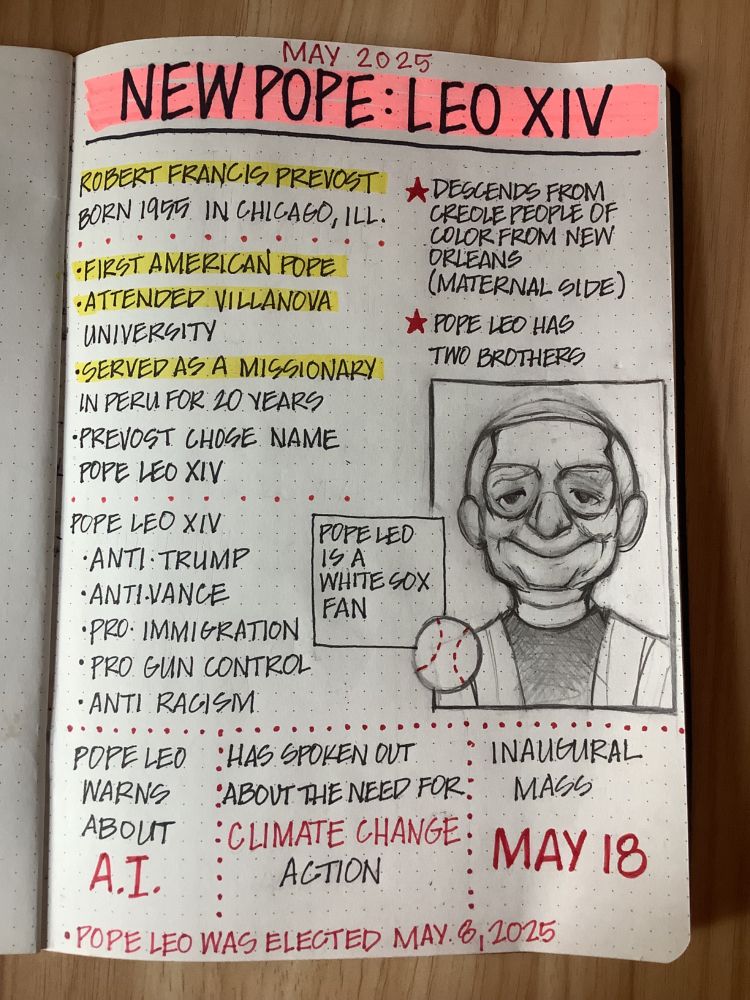 MAY 2025
NEW POPE: LEO XIV
ROBERT FRANCIS PREVOST
BORN 1955 IN CHICAGO, ILL.
• FIRST AMERICAN POPE
• ATTENDED VILLANOVA
UNIVERSITY
• SERVED AS A MISSIONARY
IN PERU FOR 20 YEARS
• PREVOST CHOSE NAME
POPE LEO XIV
★ DESCENDS FROM
CREOLE PEOPLE OF
COLOR FROM NEW
ORLEANS
(MATERNAL SIDE)
★ POPE LEO HAS
TWO BROTHERS
POPE LEO XIV
• ANTI-TRUMP
• ANTI-VANCE
• PRO-IMMIGRATION
• PRO GUN CONTROL
• ANTI RACISM
POPE LEO
IS A
WHITE SOX
FAN
POPE LEO
WARNS
ABOUT
A.I.
HAS SPOKEN OUT
ABOUT THE NEED FOR
CLIMATE CHANGE
ACTION
INAUGURAL
MASS
MAY 18
• POPE LEO WAS ELECTED MAY 8, 2025